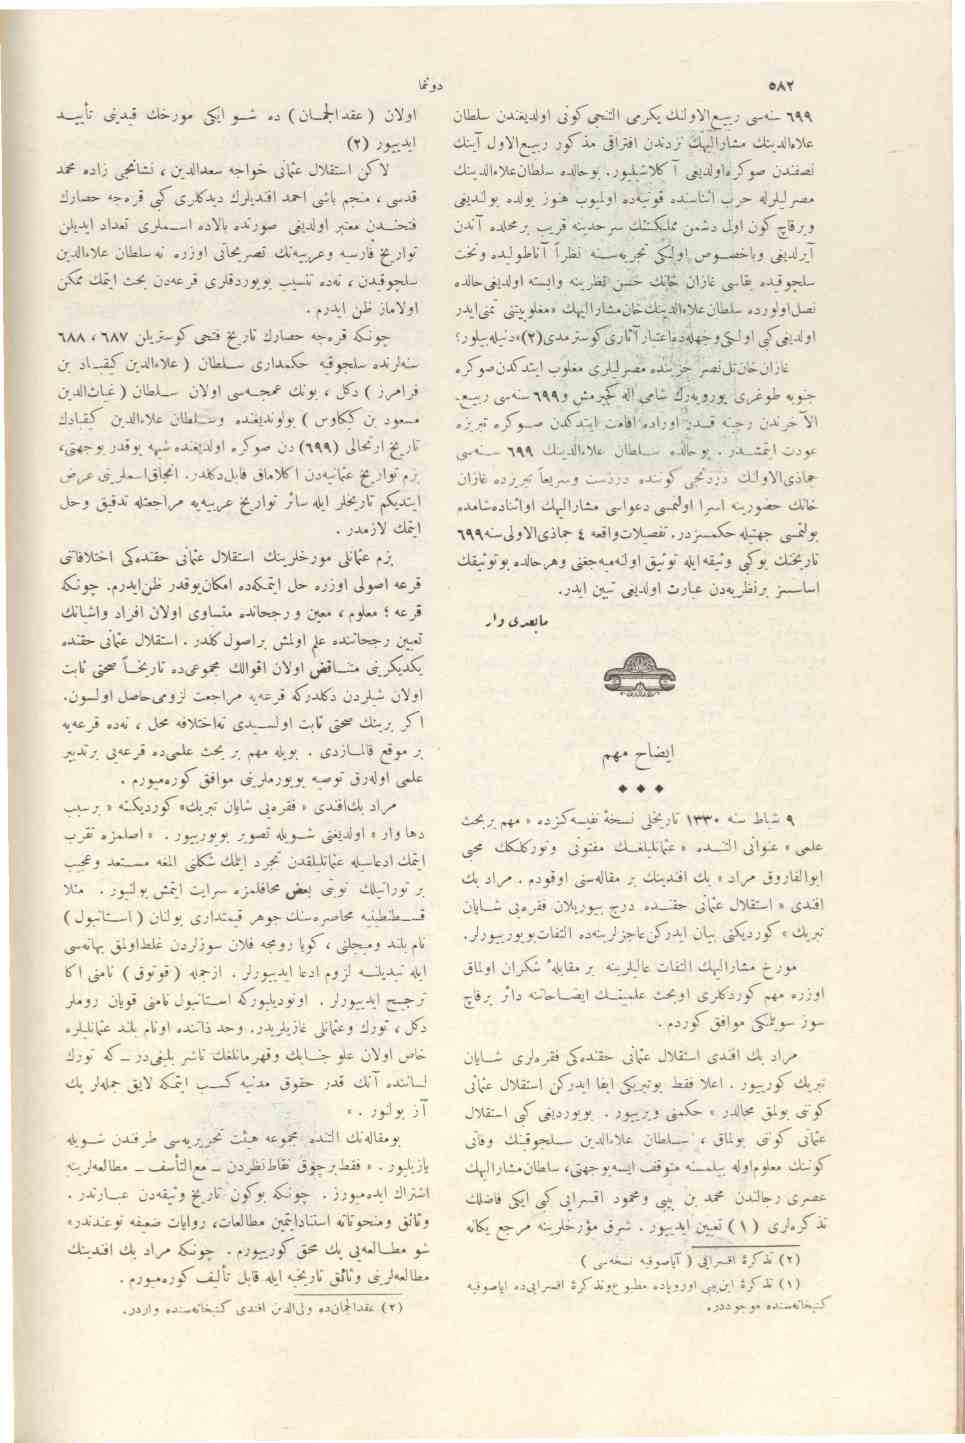 ٥٨٢
دونما
٦٩٩ سنه‌سی ربیع‌الاولنك یكرمی التنجی كونی اولدیغندن سلطان
علاءالدینك مشارالیهك نزدندن افتراقی مذكور ربیع‌الاول آینك
نصفندن صوكره‌اولدیغی آكلاشیلیور. بوحالده سلطان‌علاءالدینك
مصرلیلرله حرب اثناسنده قونیه‌ده اولمیوب هنوز یولده بولندیغی
وبرقاچ كون اول دشمن مملكتنك سرحدینه قریب برمحلده آندن
آیرلدیغی وباخصوص اولكی تجربه‌سنه نظراً آناطولیده وتخت
سلجوقیده بقاسی غازان خانك حسن نظرینه وابسته اولدیغی‌حالده
نصل‌اولورده سلطان‌علاءالدینك‌خان‌مشارالیهك «مغلوبیتنی تمنی‌ایدر
اولدیغی كبی اولكی‌وجهله‌ده‌اعتبار آثاری‌كوسترمدی(٢)»دنیله‌بیلور؟
غازان‌خان‌تل‌نصر جزینده مصرلیلری مغلوب ایتدكدن‌صوكره
جنوبه طوغری یورویه‌رك شامی اله كچیرمش و٦٩٩ سنه‌سی ربیع‌
الآخرندن رجبنه قدر اوراده اقامت ایتدكدن صوكره تبریزه
عودت ایتمشدر. بوحالده سلطان علاءالدینك ٦٩٩ سنه‌سی
جماذی‌الاولنك دردنجی كوننده دردست وسریعاً تبریزده غازان
خانك حضورینه اسرا اولنمسی دعواسی مشارالیهك اواثناده‌شامده
بولنمسی جهتیله حكمسزدر. تفصیلات‌واقعه ٤ جماذی‌الاولی‌سنه٦٩٩
تاریخنك بوكبی وثیقه ایله توثیق اولنه‌میه‌جغنی وهرحالده بوتوثیقك
اساسسز برنظریه‌دن عبارت اولدیغی تبین ایدر.
مابعدی وار
ایضاح مهم
٩ شباط سنه ١٣٣٠ تاریخلی نسخهٔ نفیسه‌كزده « مهم بربحث
علمی » عنوانی التنده « عثمانلیلغك مفتونی وتوركلكك محبی
ابوالفاروق مراد » بك افندینك بر مقاله‌سنی اوقودم. مراد بك
افندی « استقلال عثمانی حقنده درج بیوریلان فقره‌یی شایان
تبریك » كوردیكنی بیان ایدركن‌عاجزلرینه‌ده التفات‌بویوریورلر.
مورخ مشارالیهك التفات عالیلرینه بر مقابلهٔ شكران اولماق
اوزره مهم كوردكلری اوبحث علمینك ایضاحاتنه دائر برقاچ
سوز سویلمكی موافق كوردم.
مراد بك افندی استقلال عثمانی حقنده‌كی فقره‌لری شایان
تبریك كوریور. اعلا فقط بوتبریكی ایفا ایدركن استقلال عثمانی
كوننی بولمق محالدر » حكمنی ویرییور. بویوردیغی كبی استقلال
عثمانی كوننی بولماق، سلطان علاءالدین سلجوقینك وفاتی
كوننك معلوم‌اوله بیلمسنه متوقف ایسه‌بوجهتی، سلطان‌مشارالیهك
عصری رجالندن محمد بن بیبی ومحمود اقسرایی كبی ایكی فاضلك
تذكره‌لری (١) تعیین ایدییور. شرق مؤرخلرینه مرجع یكانه
(٢) تذكرهٔ اقسرایی ( آیاصوفیه نسخه‌سی )
(١) تذكرهٔ ابن‌بیبی اوروپاده مطبوع‌وتذكرهٔ اقسرایی‌ده ایاصوفیه
كتبخانه‌سنده موجوددر.
اولان (عقدالجمان) ده شو ایكی مورخك قیدینی تأیید
ایدییور (٢)
لاكن استقلال عثمانی خواجه سعدالدین، نشانجی زاده محمد
قدسی، منجم باشی احمد افندیلرك دیدكلری كبی قره‌جه حصارك
فتحندن معتبر اولدیغی صورتده بالاده اسملری تعداد ایدیلن
تواریخ فارسیه وعربیه‌نك تصریحاتی اوزره نه سلطان علاءالدین
سلجوقیدن، نه‌ده تنسیب بویوردقلری قرعه‌دن بحث ایتمك ممكن
اولاماز ظن ایدرم.
چونكه قره‌جه حصارك تاریخ فتحی كوستریلن ٦٨٧، ٦٨٨
سنه‌لرنده سلجوقیه حكمداری سلطان (علاءالدین كیقباد بن
فرامرز) دكل، بونك عمجه‌سی اولان سلطان (غیاث‌الدین
مسعود بن كیكاوس) بولوندیغنده وسلطان علاءالدین كیقبادك
تاریخ ارتحالی (٦٩٩) دن صوكره اولدیغنده شبهه یوقدر بوجهتی،
بزم تواریخ عثمانیه‌دن اكلاماق قابل‌دكلدر. انجاق‌اسملرینی عرض
ایتدیكم تاریخلر ایله سائر تواریخ عربیه‌یه مراجعتله تدقیق وحل
ایتمك لازمدر.
بزم عثمانلی مورخلرینك استقلال عثمانی حقنده‌كی اختلافاتی
قرعه اصولی اوزره حل ایتمكه‌ده امكان‌یوقدر ظن‌ایدرم. چونكه
قرعه؛ معلوم، معین ورجحانده متساوی اولان افراد واشیانك
تعیین رجحاننده علم اولمش براصول‌كلدر. استقلال عثمانی حقنده
یكدیكرینی متناقض اولان اقوالك مجموعی‌ده تاریخاً صحتی ثابت
اولان شیلردن دكلدركه قرعه‌یه مراجعت لزومی‌حاصل اولسون.
اكر برینك صحتی ثابت اولسیدی نه‌اختلافه محل، نه‌ده قرعه‌یه
بر موقع قالمازدی. بویله مهم بر بحث علمی‌ده قرعه‌یی برتدبیر
علمی اوله‌رق توصیه بویورملرینی موافق كوره‌میورم.
مراد بك‌افندی « فقره‌یی شایان تبریك» كوردیكنه « برسبب
دها وار » اولدیغنی شویله تصویر بویورییور. « اصلمزه تقرب
ایتمك ادعاسیله عثمانلیلقدن تجرد ایتمك شكلنی المغه مستعد وعجیب
بر تورانیلك نوعی بعض محافلمزه سرایت ایتمش بولنیور. مثلا
قسطنطینیه محاصره‌سنك جوهر قیمتداری بولنان (استانبول)
نام بلند ومبجلنی، كویا رومجه فلان سوزلردن غلط‌اولمق بهانه‌سی
ایله تبدیلنه لزوم ادعا ایدییورلر. ازجمله (قونوق) نامنی اكا
ترجیح ایدییورلر. اونودیلیوركه استانبول نامنی قویان روملر
دكل، تورك وعثمانلی غازیلریدر. وحد ذاتنده اونام بلند عثمانلیلره
خاص اولان علو جنابك وقهرمانلغك ناشر بلیغی‌در ــ كه تورك
لساننده آنك قدر حقوق مدنیه كسب ایتمكه لایق جمله‌لر پك
آز بولنور. »
بومقاله‌نك التنده مجموعه هیئت تحریریه‌سی طرفندن شویله
یازیلیور. « فقط برچوق نقاط‌نظردن ــ مع‌التأسف ــ مطالعه‌لرینه
اشتراك ایده‌میورز. چونكه بوكون تاریخ وثیقه‌دن عبارتدر.
وثائق ومنحوتاته استنادایتمین مطالعات، روایات ضعیفه نوعندندر»
شو مطالعه‌یی پك محق كورییورم. چونكه مراد بك افندینك
مطالعه‌لرینی وثائق تاریخیه ایله قابل تألیف كوره‌میورم.
(٢) عقدالجمان‌ده ولی‌الدین افندی كتبخانه‌سنده واردر.